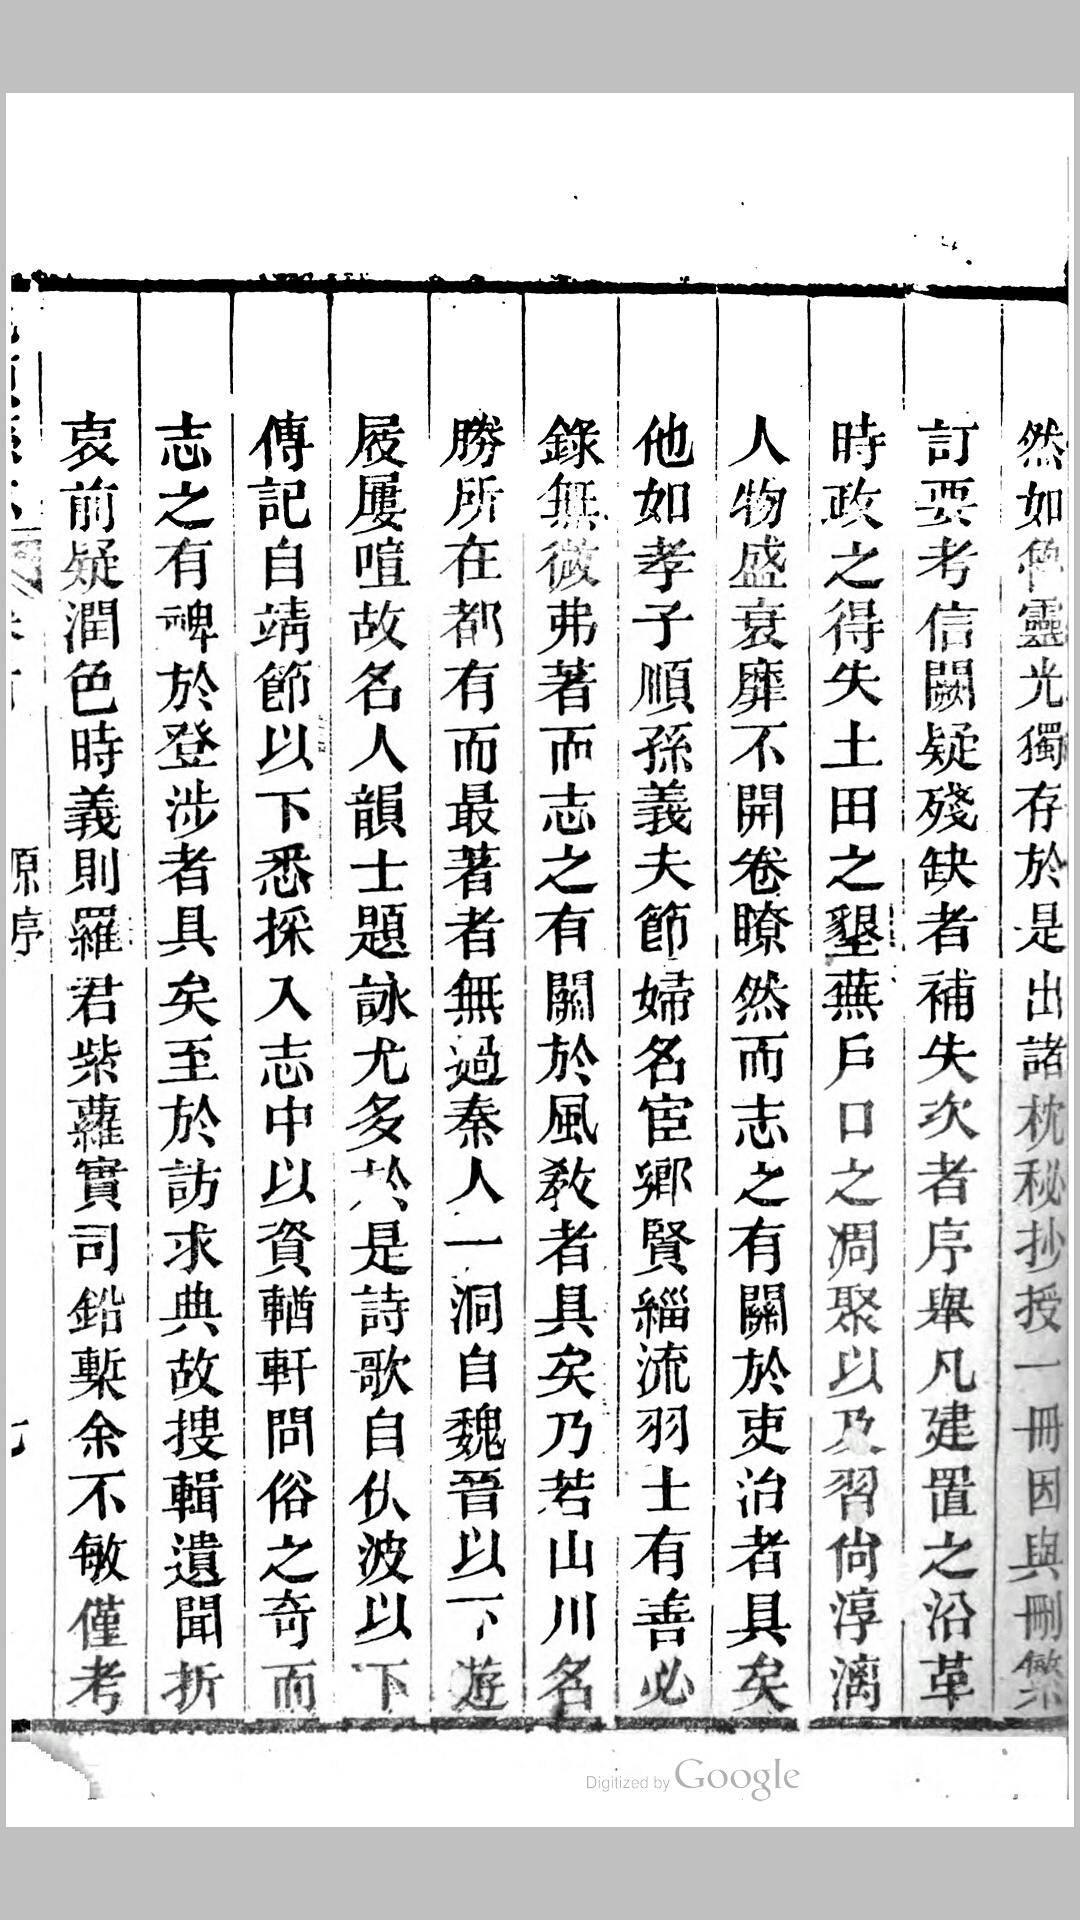 然如魯靈光獨存於是出諸枕秘抄授一冊因與刪繁
訂要考信闕疑殘缺者補失次者序舉凡建置之沿革
時政之得失土田之墾蕪戶口之凋聚以及習尙淳漓
人物盛衰靡不開卷瞭然而志之有關於吏治者具矣
他如孝子順孫義夫節婦名宦鄉賢緇流羽士有善必
錄無微弗著而志之有關於風敎者具矣乃若山川名
勝所在都有而最著者無過秦人一洞自魏晉以下遊
屐屢喧故名人韻士題詠尤多於是詩歌自仈波以下
傳記自靖節以下悉採入志中以資輶軒問俗之奇而
志之有裨於登涉者具矣至於訪求典故搜輯遺聞折
衷前疑潤色時義則羅君紫蘿實司鉛槧余不敏僅考
原序
Digitized by Google